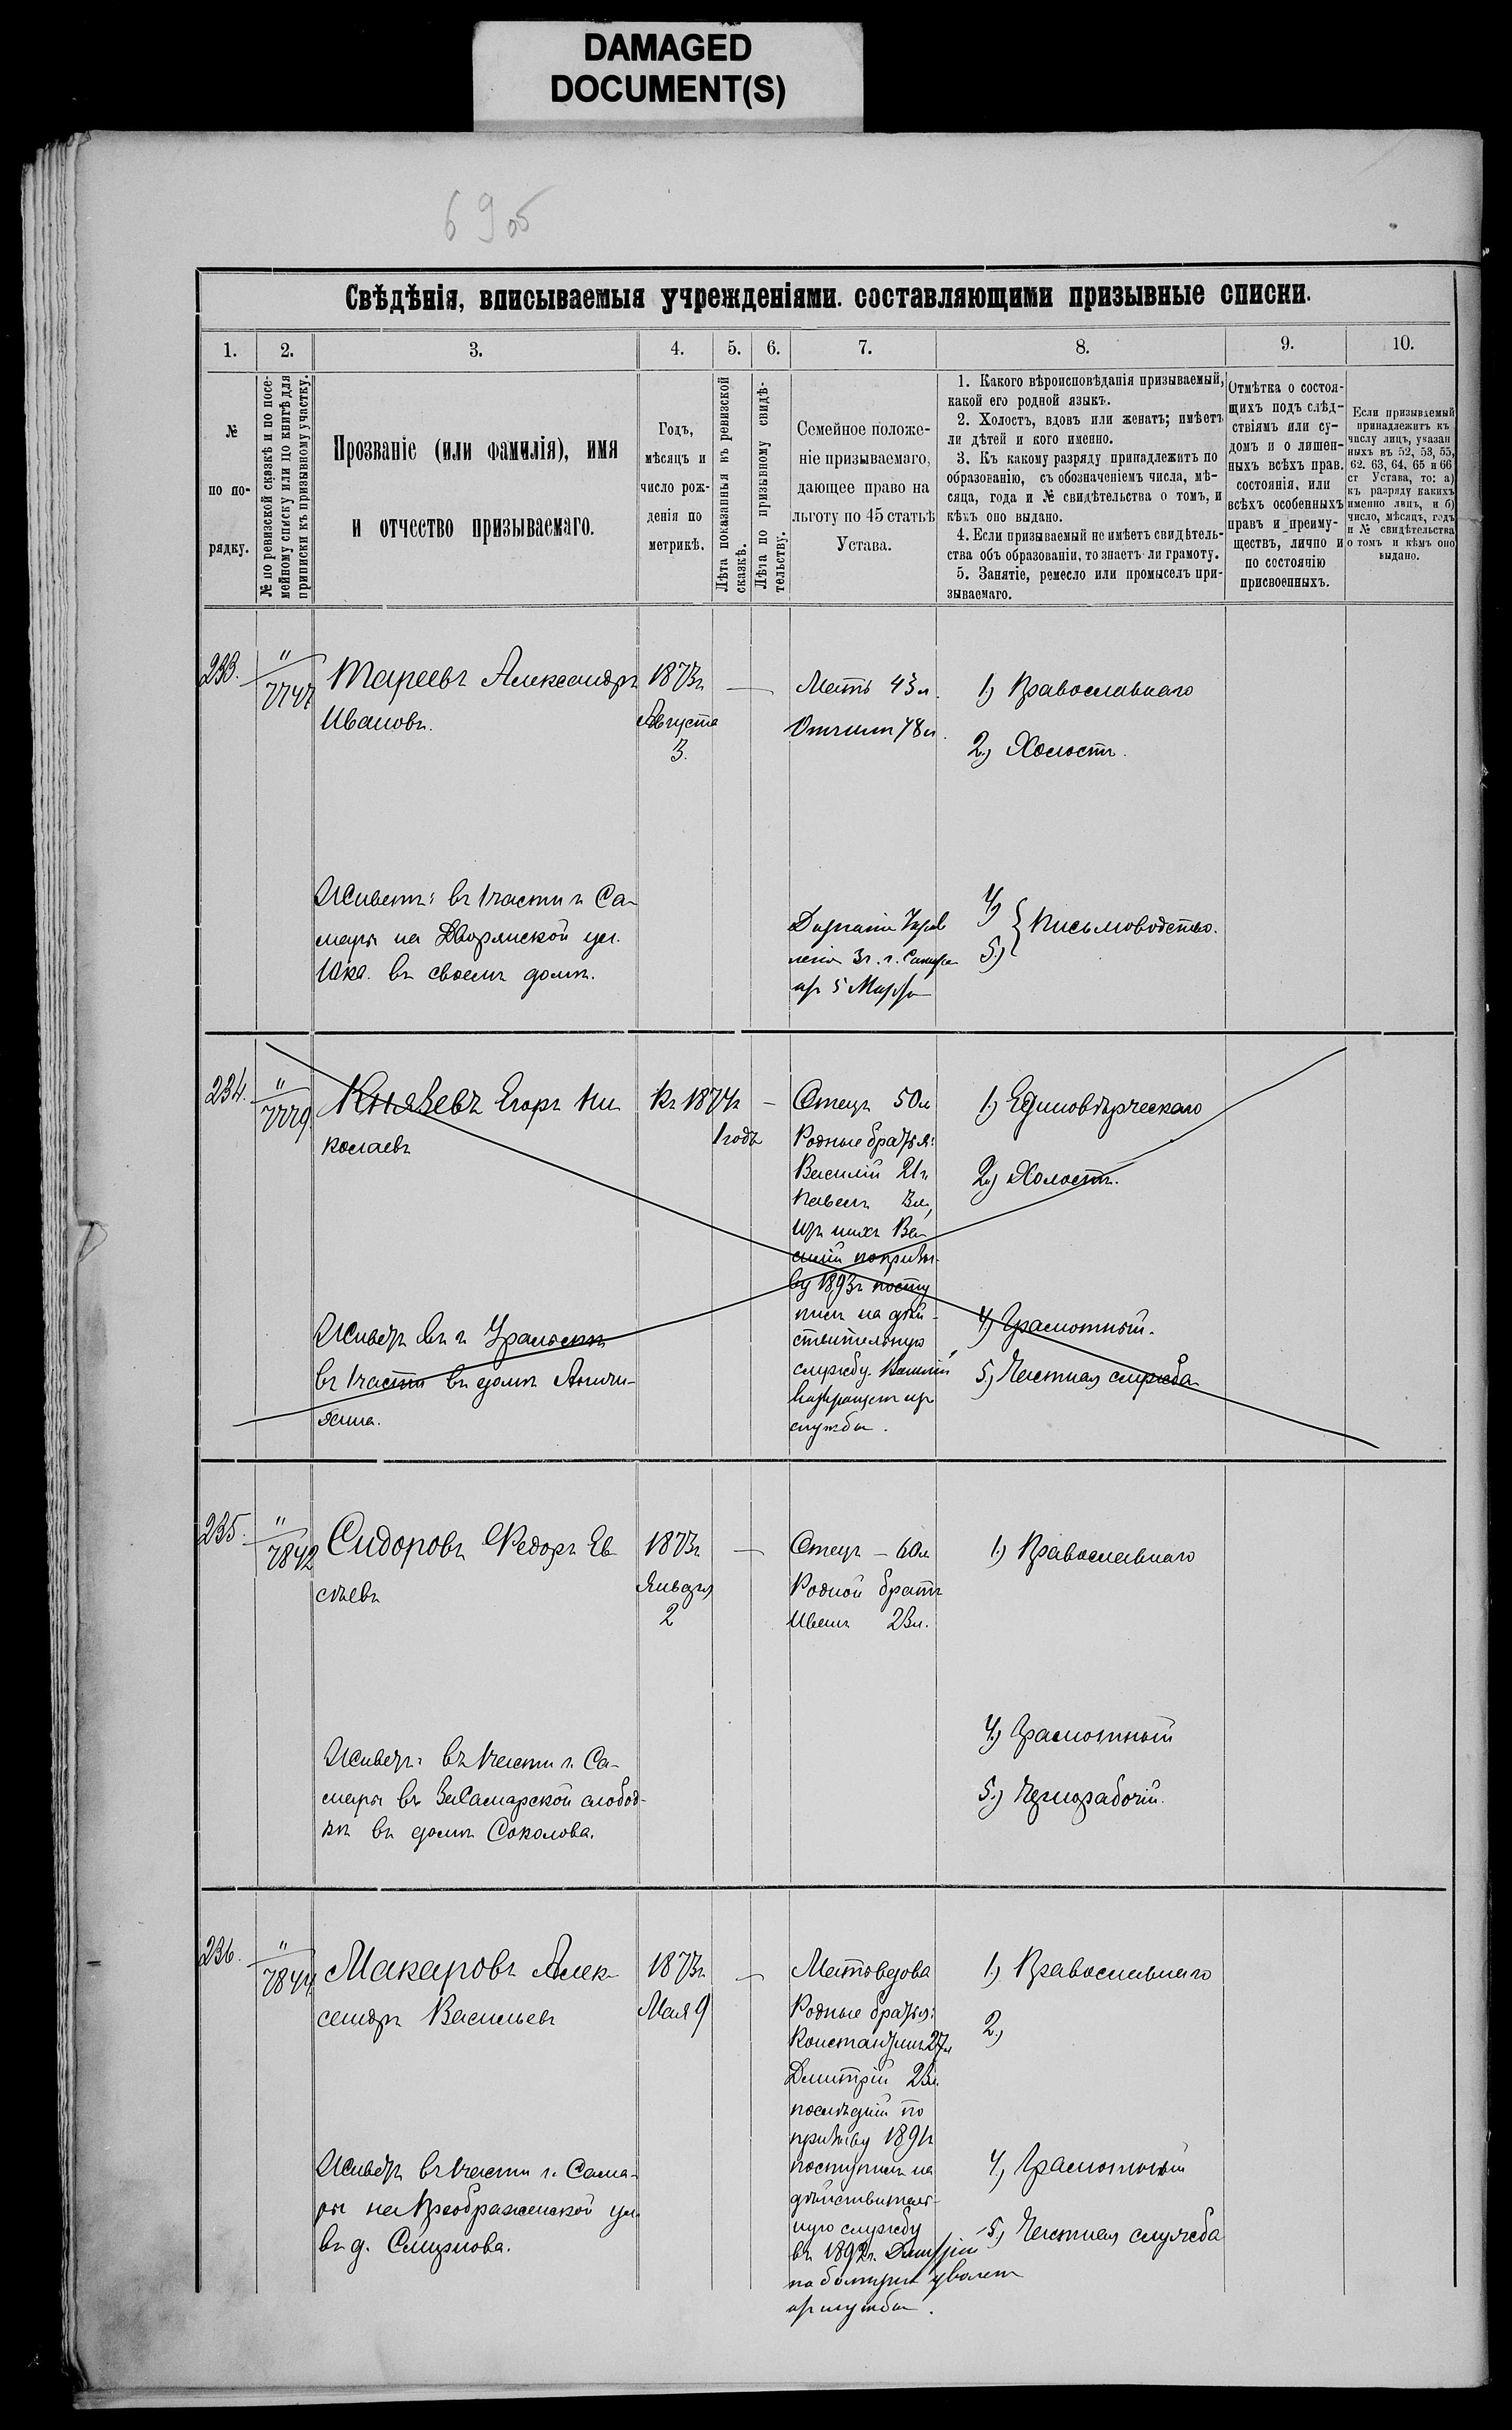 DAMAGED
DOCUMENT(S)
69 об
Свѣдѣнія, вписываемыя учрежденіями, составляющими призывные списки.
1. 2. 3. 4. 5. 6. 7. 8. 9. 10.
№
по по-
рядку.
№ по ревизской сказкѣ и по посе-
мейному списку или по книгѣ для
приписки къ призывному участку.
Прозваніе (или фамилія), имя
и отчество призываемаго.
Годъ,
мѣсяцъ и
число рож-
денія по
метрикѣ.
Лѣта показанныя въ ревизской
сказкѣ.
Лѣта по призывному свидѣ-
тельству.
Семейное положе-
ніе призываемаго,
дающее право на
льготу по 45 статьѣ
Устава.
1. Какого вѣроисповѣданія призываемый,
какой его родной языкъ.
2. Холостъ, вдовъ или женатъ; имѣетъ
ли дѣтей и кого именно.
3. Къ какому разряду принадлежитъ по
образованію, съ обозначеніемъ числа, мѣ-
сяца, года и № свидѣтельства о томъ, и
кѣмъ оно выдано.
4. Если призываемый не имѣетъ свидѣтель-
ства объ образованіи, то знаетъ ли грамоту.
5. Занятіе, ремесло или промыселъ при-
зываемаго.
Отмѣтка о состоя-
щихъ подъ слѣд-
ствіямъ или су-
домъ и о лишен-
ныхъ всѣхъ прав.
состоянія, или
всѣхъ особенныхъ
правъ и преиму-
ществъ, лично и
по состоянію
присвоенныхъ.
Если призываемый
принадлежитъ къ
числу лицъ, указан
ныхъ въ 52, 53, 55,
62, 63, 64, 65 и 66
ст Устава, то: а)
къ разряду какихъ
именно лицъ, и б)
число, мѣсяцъ, годъ
и № свидѣтельства
о томъ и кѣмъ оно
выдано.
233.
"
7747
Тареевъ Александръ
Ивановъ.
1873г
Августа
3.
—
Мать 43 л.
Отчим 48 л.
1) Православнаго
2.) Холостъ.
Живетъ: въ 1 части г. Са-
мары на Дворянской ул.
въ своемъ домѣ.
4)
5.)
Письмоводство.
234.
"
7779
Князевъ Егоръ Ни
колаевъ
Къ 1874г
1 годъ
—
Отецъ 50 л
Родные братья:
Василій 21 г
Павелъ 3 л,
изъ нихъ Ва-
силій по призы-
ву 1893г посту
пилъ на дѣй-
ствительную
службу. Василій
службы.
1.) Единовѣрческаго
2.) Холостъ.
4) Грамотный.
5.) Частная служба
Живетъ въ г. Уральскѣ
въ 1 части въ домѣ Аничи-
хина.
235.
"
7842
Сидоровъ Федоръ Ев
сѣевъ
1873г
Января
2
—
Отецъ – 60 л
Родной братъ
Иванъ 23 л.
1.) Православнаго
4.) Грамотный
5.) Чернорабочій.
Живетъ: въ 1 части г. Са-
мары въ Засамарской слобод-
кѣ въ домѣ Соколова.
236.
"
7844
Макаровъ Алек-
сандръ Васильевъ
1873г
Мая 9
—
Мать вдова
Родные братья:
Константинъ 27 л
Дмитрій 23 л.
послѣдній по
призыву 1891г
поступилъ на
дѣйствитель-
ную службу
въ 1892г. Дмитрій
уволен
службы.
1.) Православнаго
2.)
4.) Грамотный
5.) Частная служба
Живетъ въ 1 части г. Сама-
ры на Преображенской ул.
въ д. Смирнова.